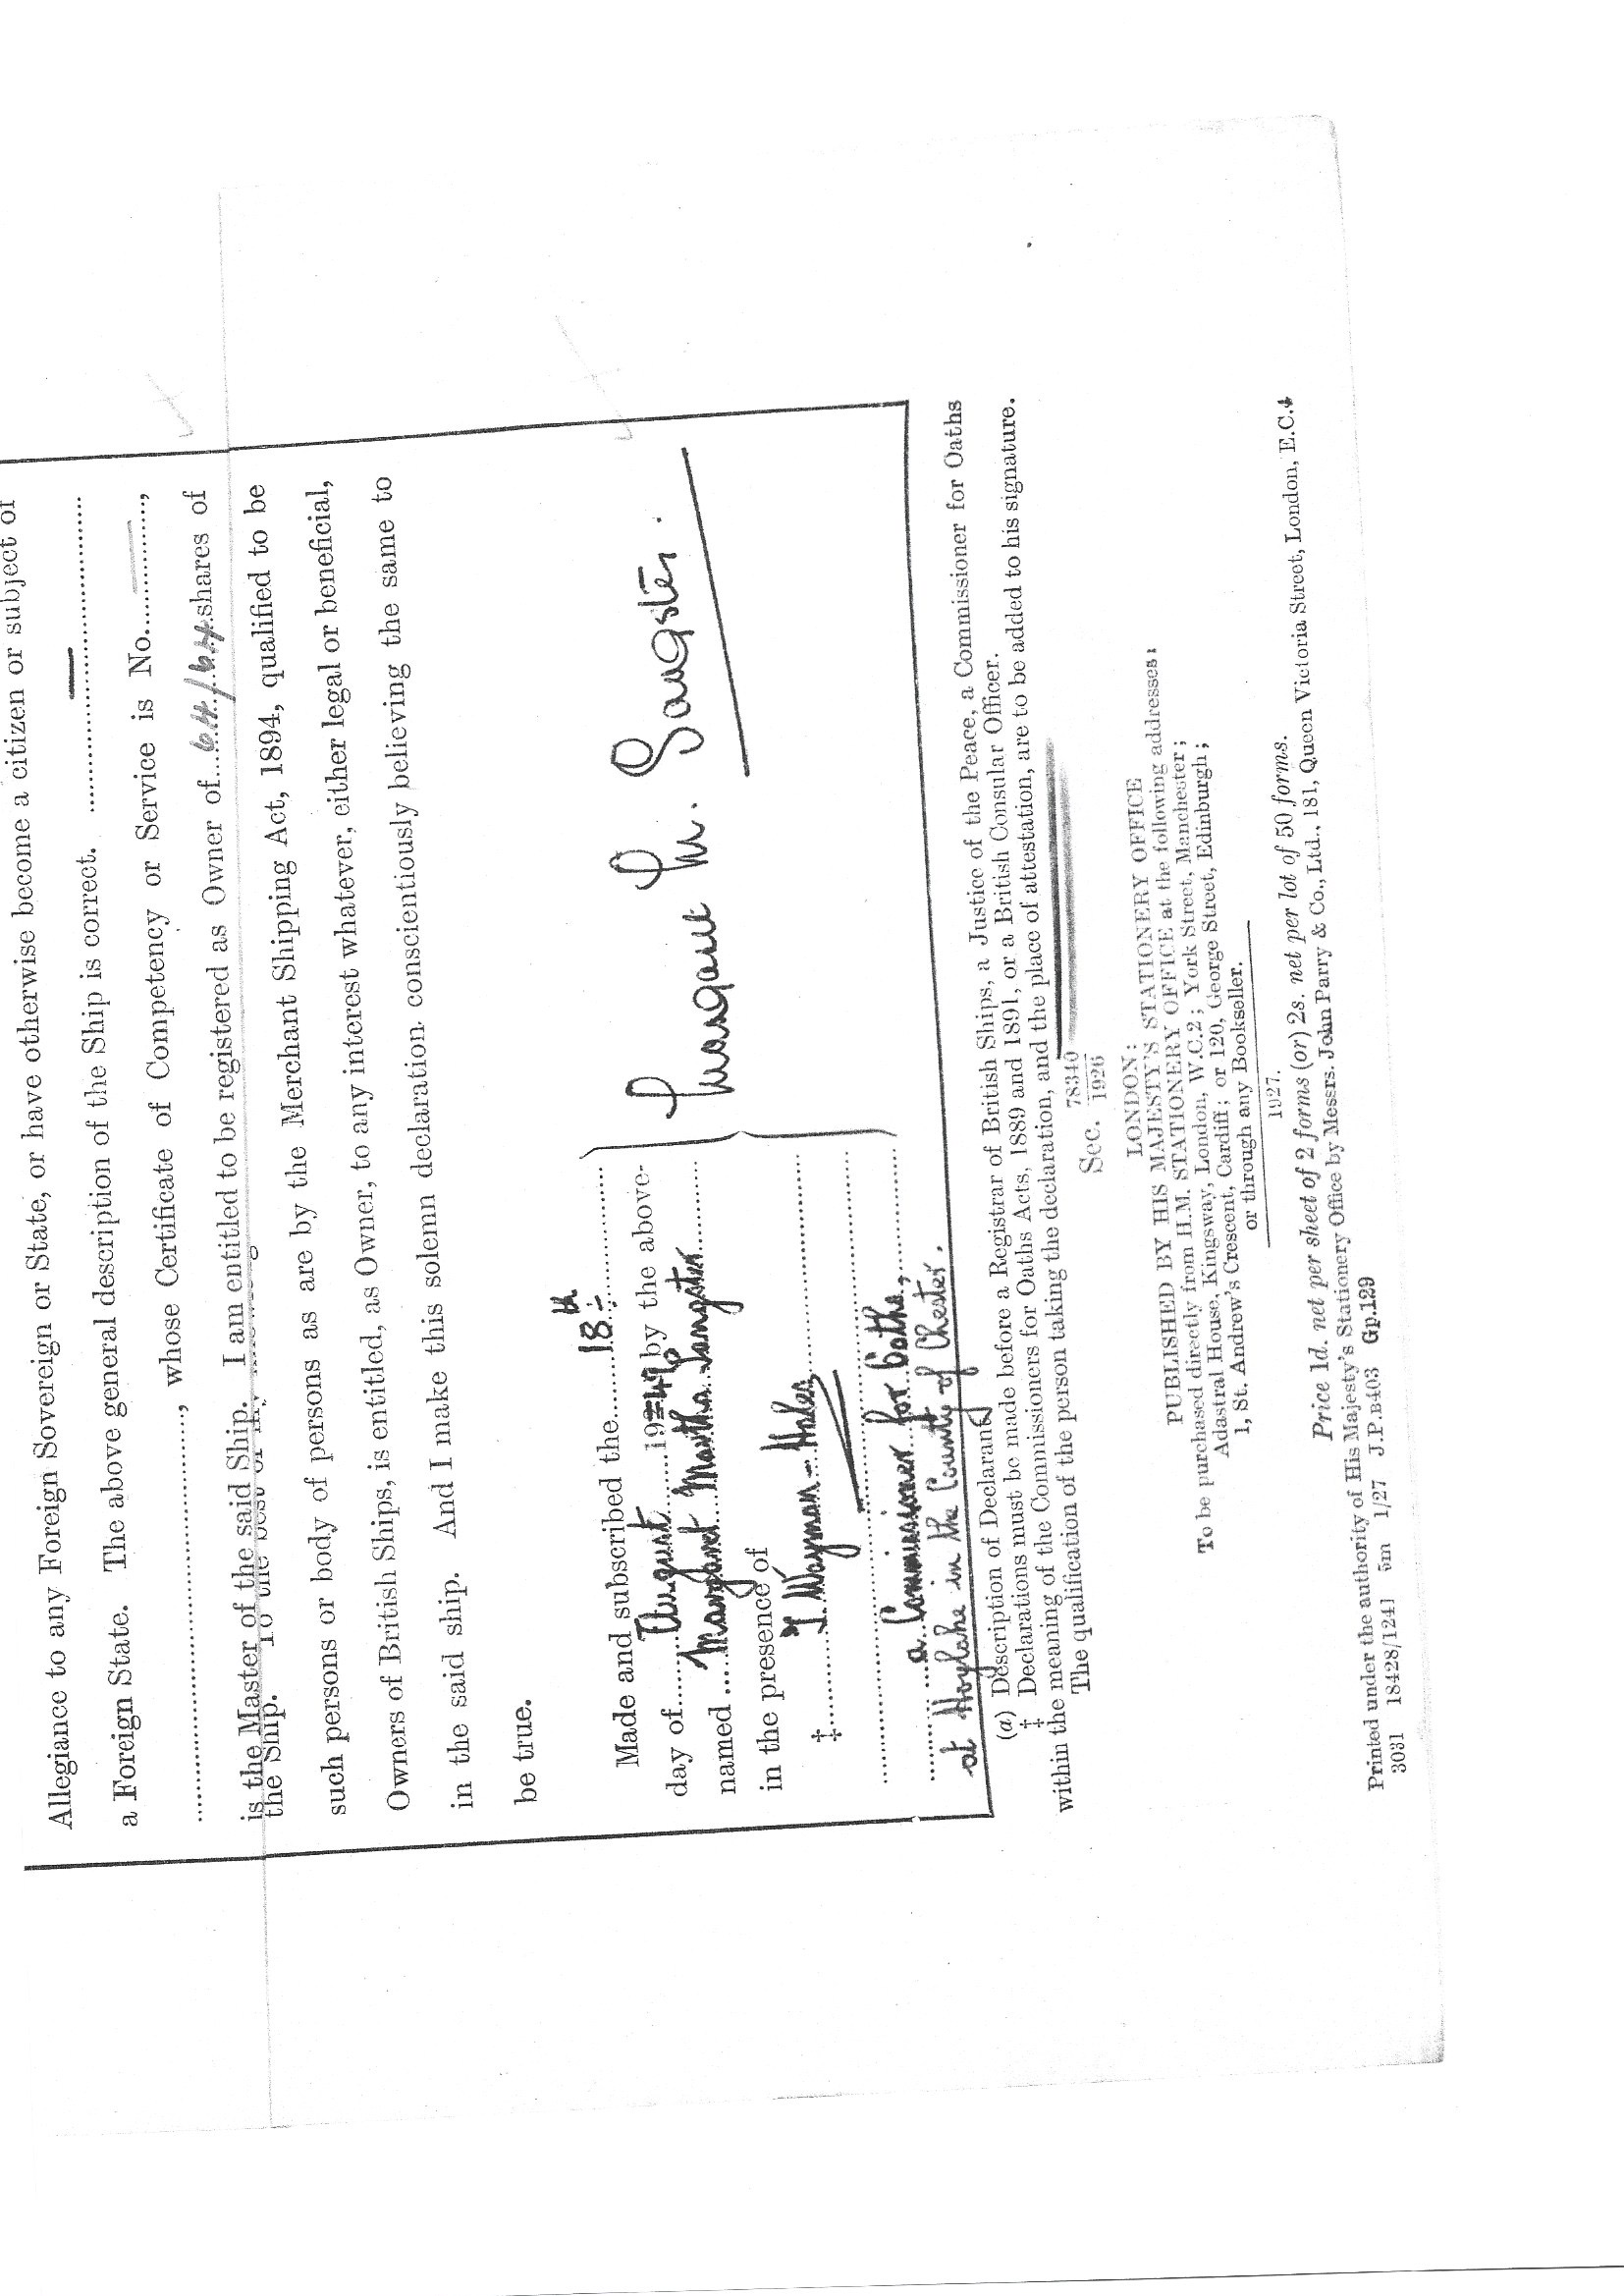 Allegiance to any Foreign Sovereign or State, or have otherwise become a citizen or subject of
a Foreign State. The above general description of the Ship is correct. ..............................
.............................., whose Certificate of Competency or Service is No..............,
is the Master of the said Ship. I am entitled to be registered as Owner of....64/64...shares of
the Ship. To the best of my
such persons or body of persons as are by the Merchant Shipping Act, 1894, qualified to be
Owners of British Ships, is entitled, as Owner, to any interest whatever, either legal or beneficial,
in the said ship. And I make this solemn declaration conscientiously believing the same to
be true.
Made and subscribed the..........18th..........
day of......August......1946 by the above-
named....Margaret Martha Sangster....
Margaret M. Sangster.
in the presence of
‡..........Wayman-Hales
..........a Commissioner for Oaths,
at Hoylake in the County of Chester.
(a) Description of Declarant.
‡ Declarations must be made before a Registrar of British Ships, a Justice of the Peace, a Commissioner for Oaths
‡ within the meaning of the Commissioners for Oaths Acts, 1889 and 1891, or a British Consular Officer.
The qualification of the person taking the declaration, and the place of attestation, are to be added to his signature.
Sec. 78340
1926
LONDON:
PUBLISHED BY HIS MAJESTY'S STATIONERY OFFICE
To be purchased directly from H.M. STATIONERY OFFICE at the following addresses:
Adastral House, Kingsway, London, W.C.2; York Street, Manchester;
1, St. Andrew's Crescent, Cardiff; or 120, George Street, Edinburgh;
or through any Bookseller.
1927.
Price 1d. net per sheet of 2 forms (or) 2s. net per lot of 50 forms.
Printed under the authority of His Majesty's Stationery Office by Messrs. John Parry & Co., Ltd., 181, Queen Victoria Street, London, E.C.4
3031 18428/124] 5m 1/27 J.P.B403 Gp.129